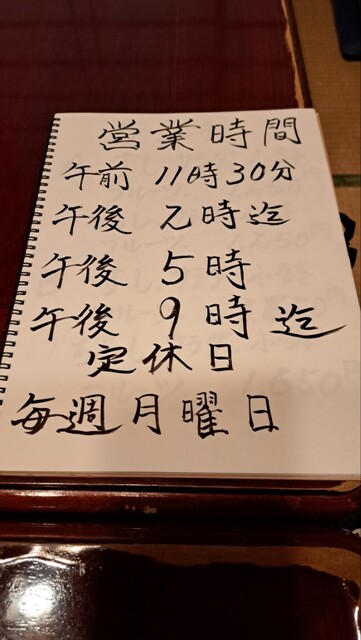 営業時間
午前 11時30分
午後 2時迄
午後 5時
午後 9時 迄
定休日
毎週月曜日